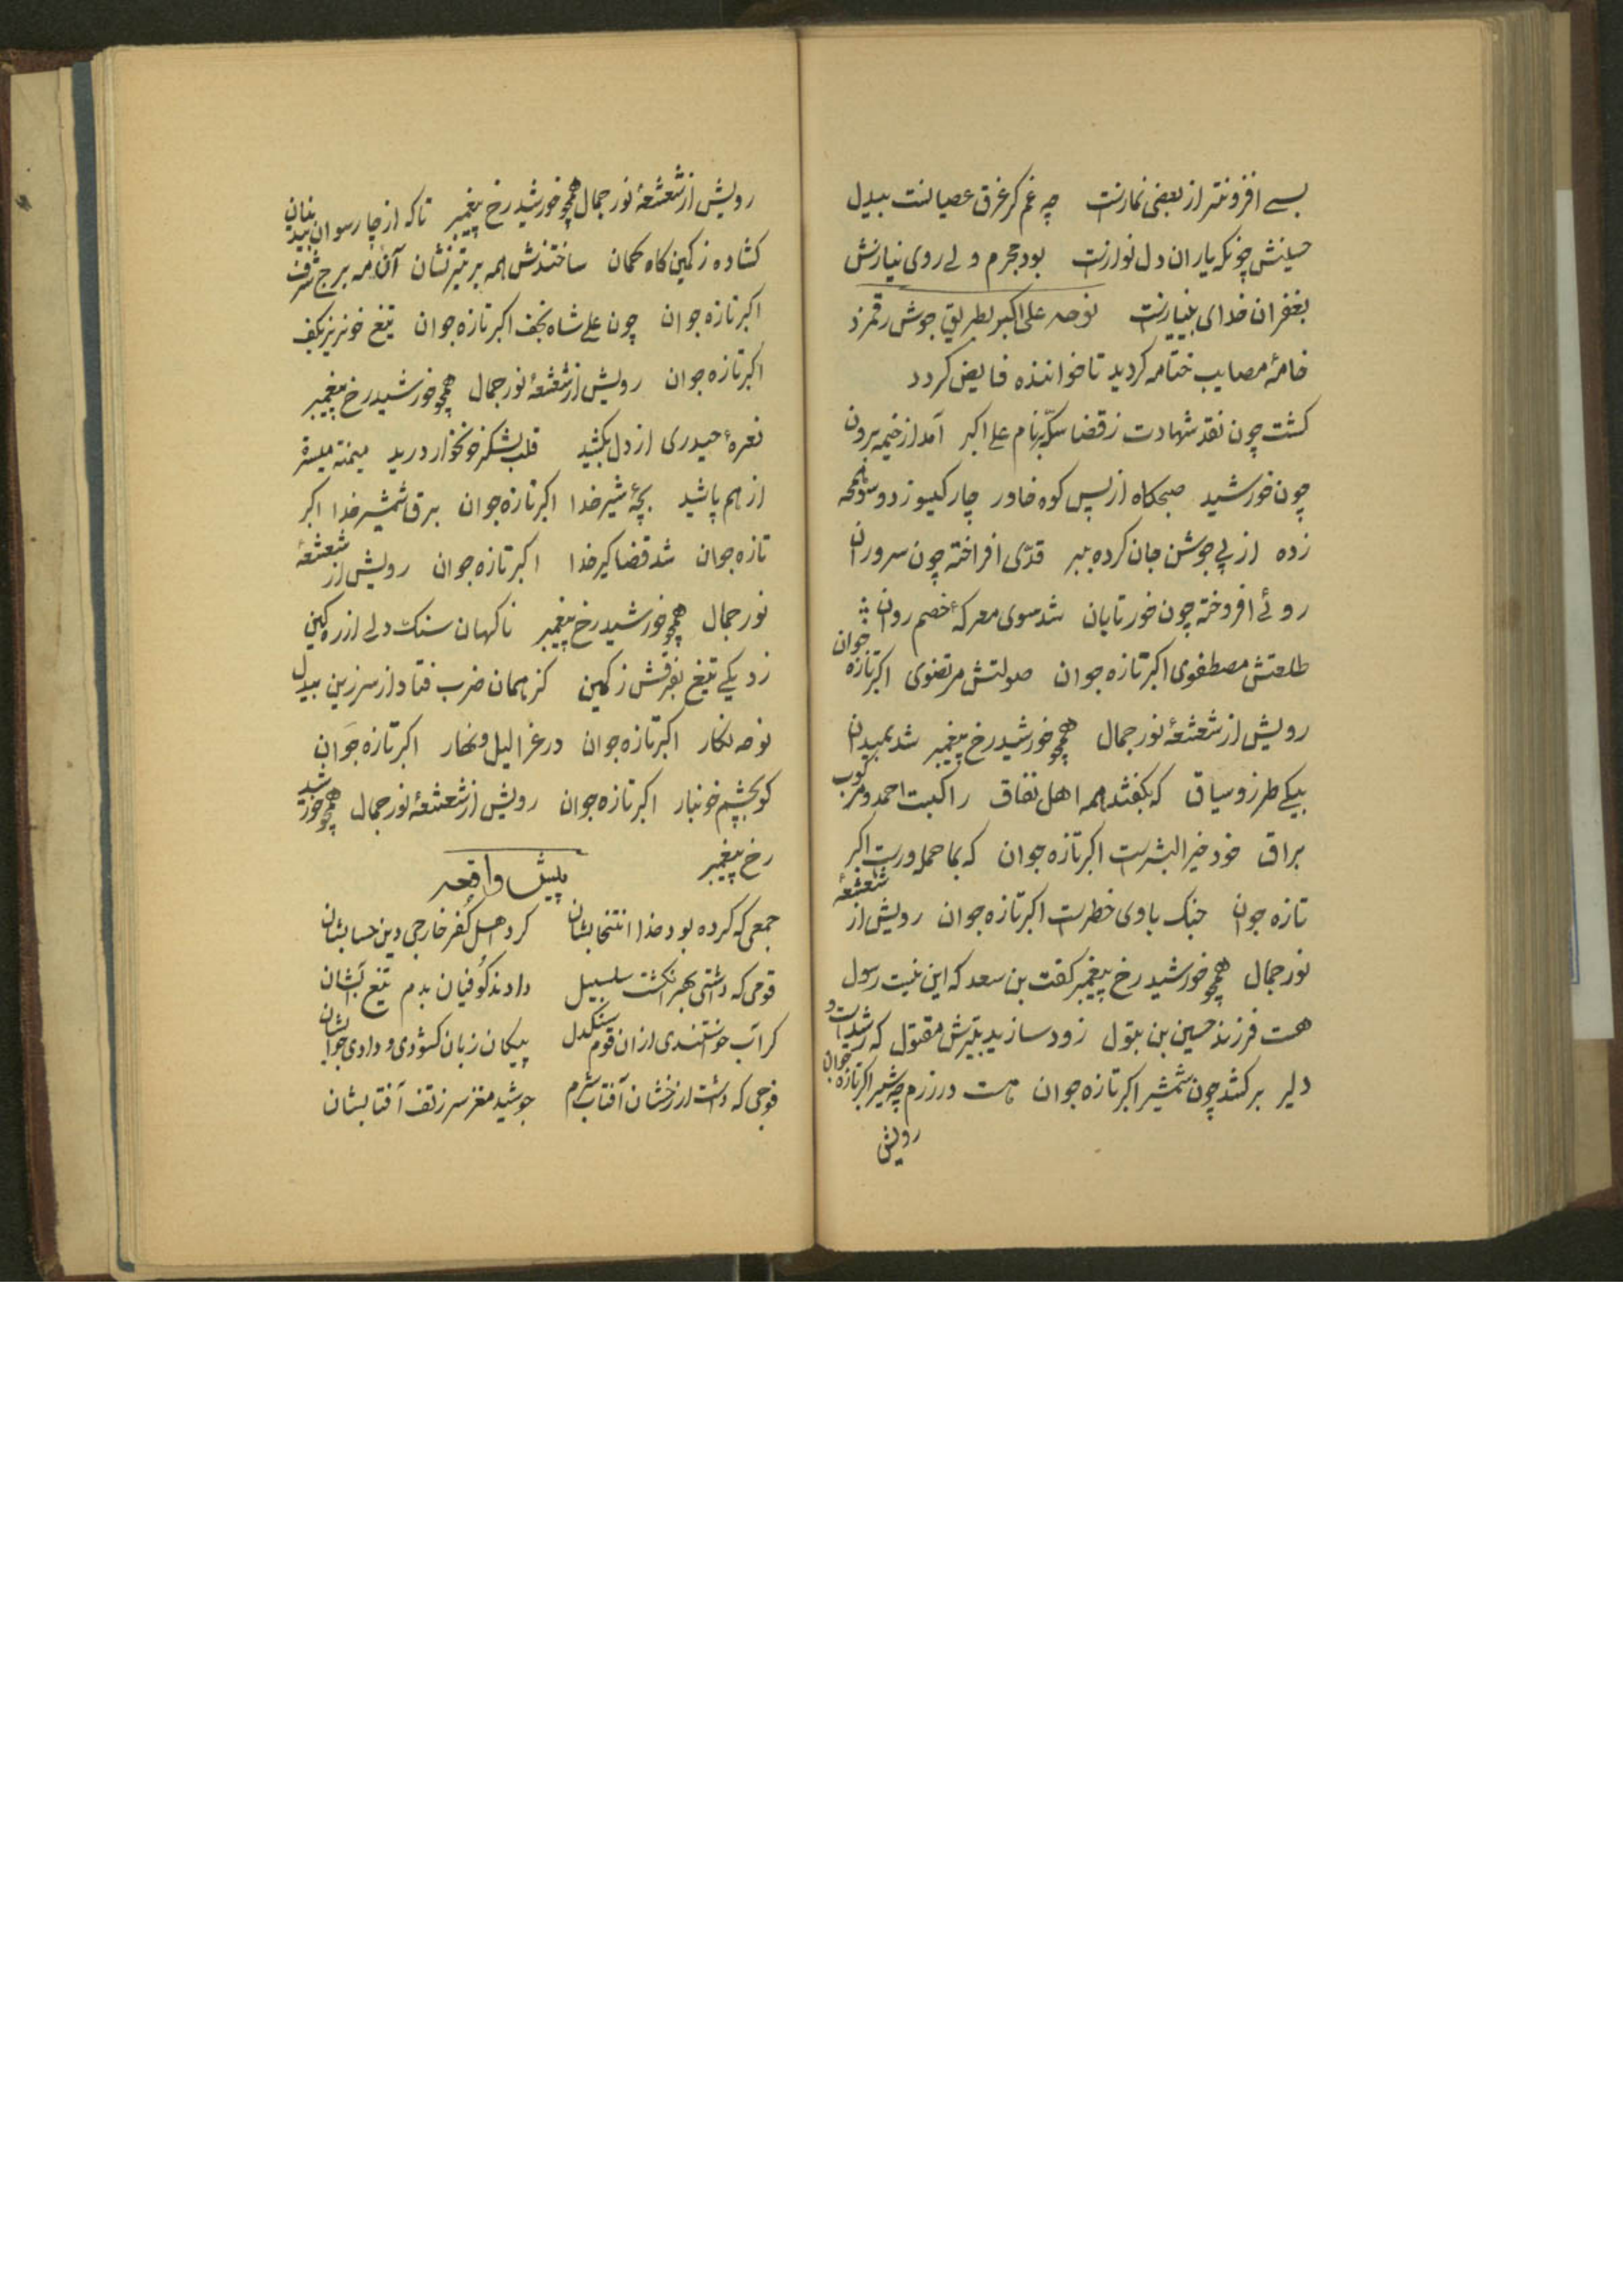 بسے افزونتر از بعضی نمازست چه غم کر غرق عصیانست بیدل
حسینش چونکه یاران دل نوازست بود مجرم ولے روی نیازش
بغفران خدای بینیازست نوحه علی اکبر بطریق جوش رقمزد
خامهٔ مصایب ختامه کردید تا خواننده فایض کردد
کشت چون نقد شهادت ز قضا سکّه بنام علے اکبر آمد از خیمه برون
چون خورشید صبحکاه از پس کوه خاور چار کیسو ز دوسو
زده از پے جوشن جان کرده ببر قدّی افراخته چون سروران
روئے افروخته چون خور تابان شد سوی معرکهٔ خصم روان
طلعتش مصطفوی اکبر تازه جوان صولتش مرتضوی اکبر تازه جوان
رویش از شعشعهٔ نور جمال همچو خورشید رخ پیغمبر شد بمیدان
بیکے طرز و سیاق که بکفتند همه اهل نفاق راکبست احمد و مرکوب
براق خود خیر البشرست اکبر تازه جوان که بما حمله ورست اکبر
تازه جوان جنک با وی خطرست اکبر تازه جوان رویش از شعشعهٔ
نور جمال همچو خورشید رخ پیغمبر کفت بن سعد که این نیت رسول
هست فرزند حسین بن بتول زود سازید بتیرش مقتول که رشیدست و
دلیر برکشد چون شمشیر اکبر تازه جوان هست در رزم چه شیر اکبر تازه جوان
رویش
رویش از شعشعهٔ نور جمال همچو خورشید رخ پیغمبر تا که از چار سو آن
کشاده ز کمین کاه کمان ساختندش همه بر تیر نشان آن مه برج شرف
اکبر تازه جوان چون علے شاه نجف اکبر تازه جوان تیغ خونریز بکف
اکبر تازه جوان رویش از شعشعهٔ نور جمال همچو خورشید رخ پیغمبر
نعرهٔ حیدری از دل بکشید قلب لشکر خونخوار درید میمنه میسره
از هم پاشید بچهٔ شیر خدا اکبر تازه جوان برق شمشیر خدا اکبر
تازه جوان شد قضا کیر خدا اکبر تازه جوان رویش از شعشعهٔ
نور جمال همچو خورشید رخ پیغمبر ناکهان سنک دلے از ره کین
زد یکے تیغ بفرقش ز کمین کز همان ضرب فتاد از سر زین بیدل
نوحه نکار اکبر تازه جوان در غرا لیل و نهار اکبر تازه جوان
کو بچشم خونبار اکبر تازه جوان رویش از شعشعهٔ نور جمال همچو خورشید
رخ پیغمبر
پیش واقعه
جمعی که کرده بود خدا انتخابشان کرد اهل کفر خارجی دین حسابشان
قومی که داشتی بهر انکشت سلسبیل دادند کوفیان بدم تیغ آبشان
کر آب خواستندی از ان قوم سنکدل پیکان زبان کشودی و دادی جوابشان
فوجی که داشت از رخشان آفتاب شرم جوشید مغز سر ز تف آفتابشان